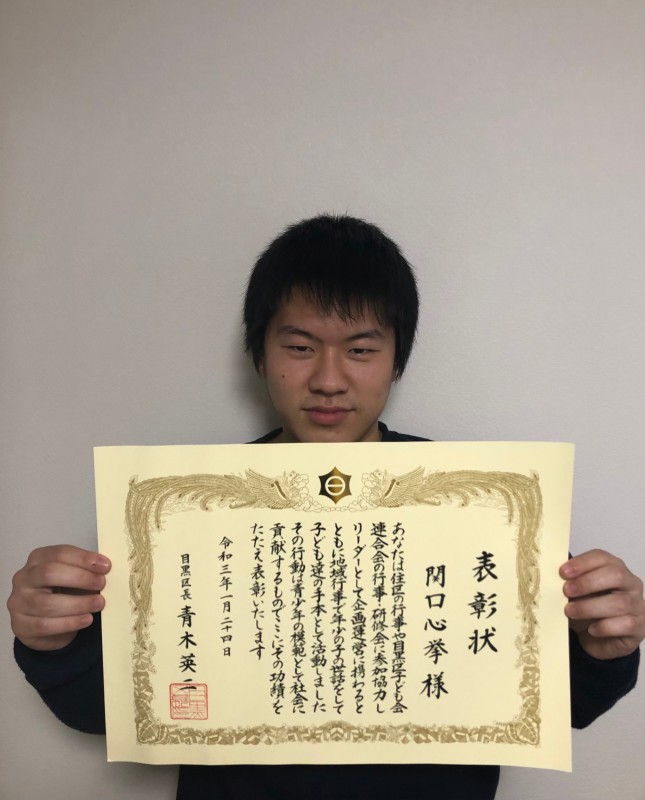 表彰状
関口心挙様
あなたは住区の行事や目黒区子ども会
連合会の行事・研修会に参加協力し
リーダーとして企画運営に携わると
ともに地域行事で年少の子の世話をして
子ども達の手本として活動しました
その行動は青少年の模範として社会に
貢献するものでここにその功績を
たたえ表彰いたします
令和三年一月二十四日
目黒区長 青木英二